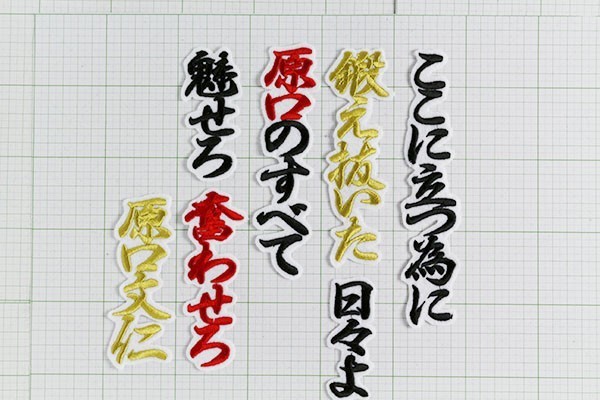 ここに立つ為に
鍛え抜いた 日々よ
原口のすべて
魅せろ 奮わせろ
原口文仁